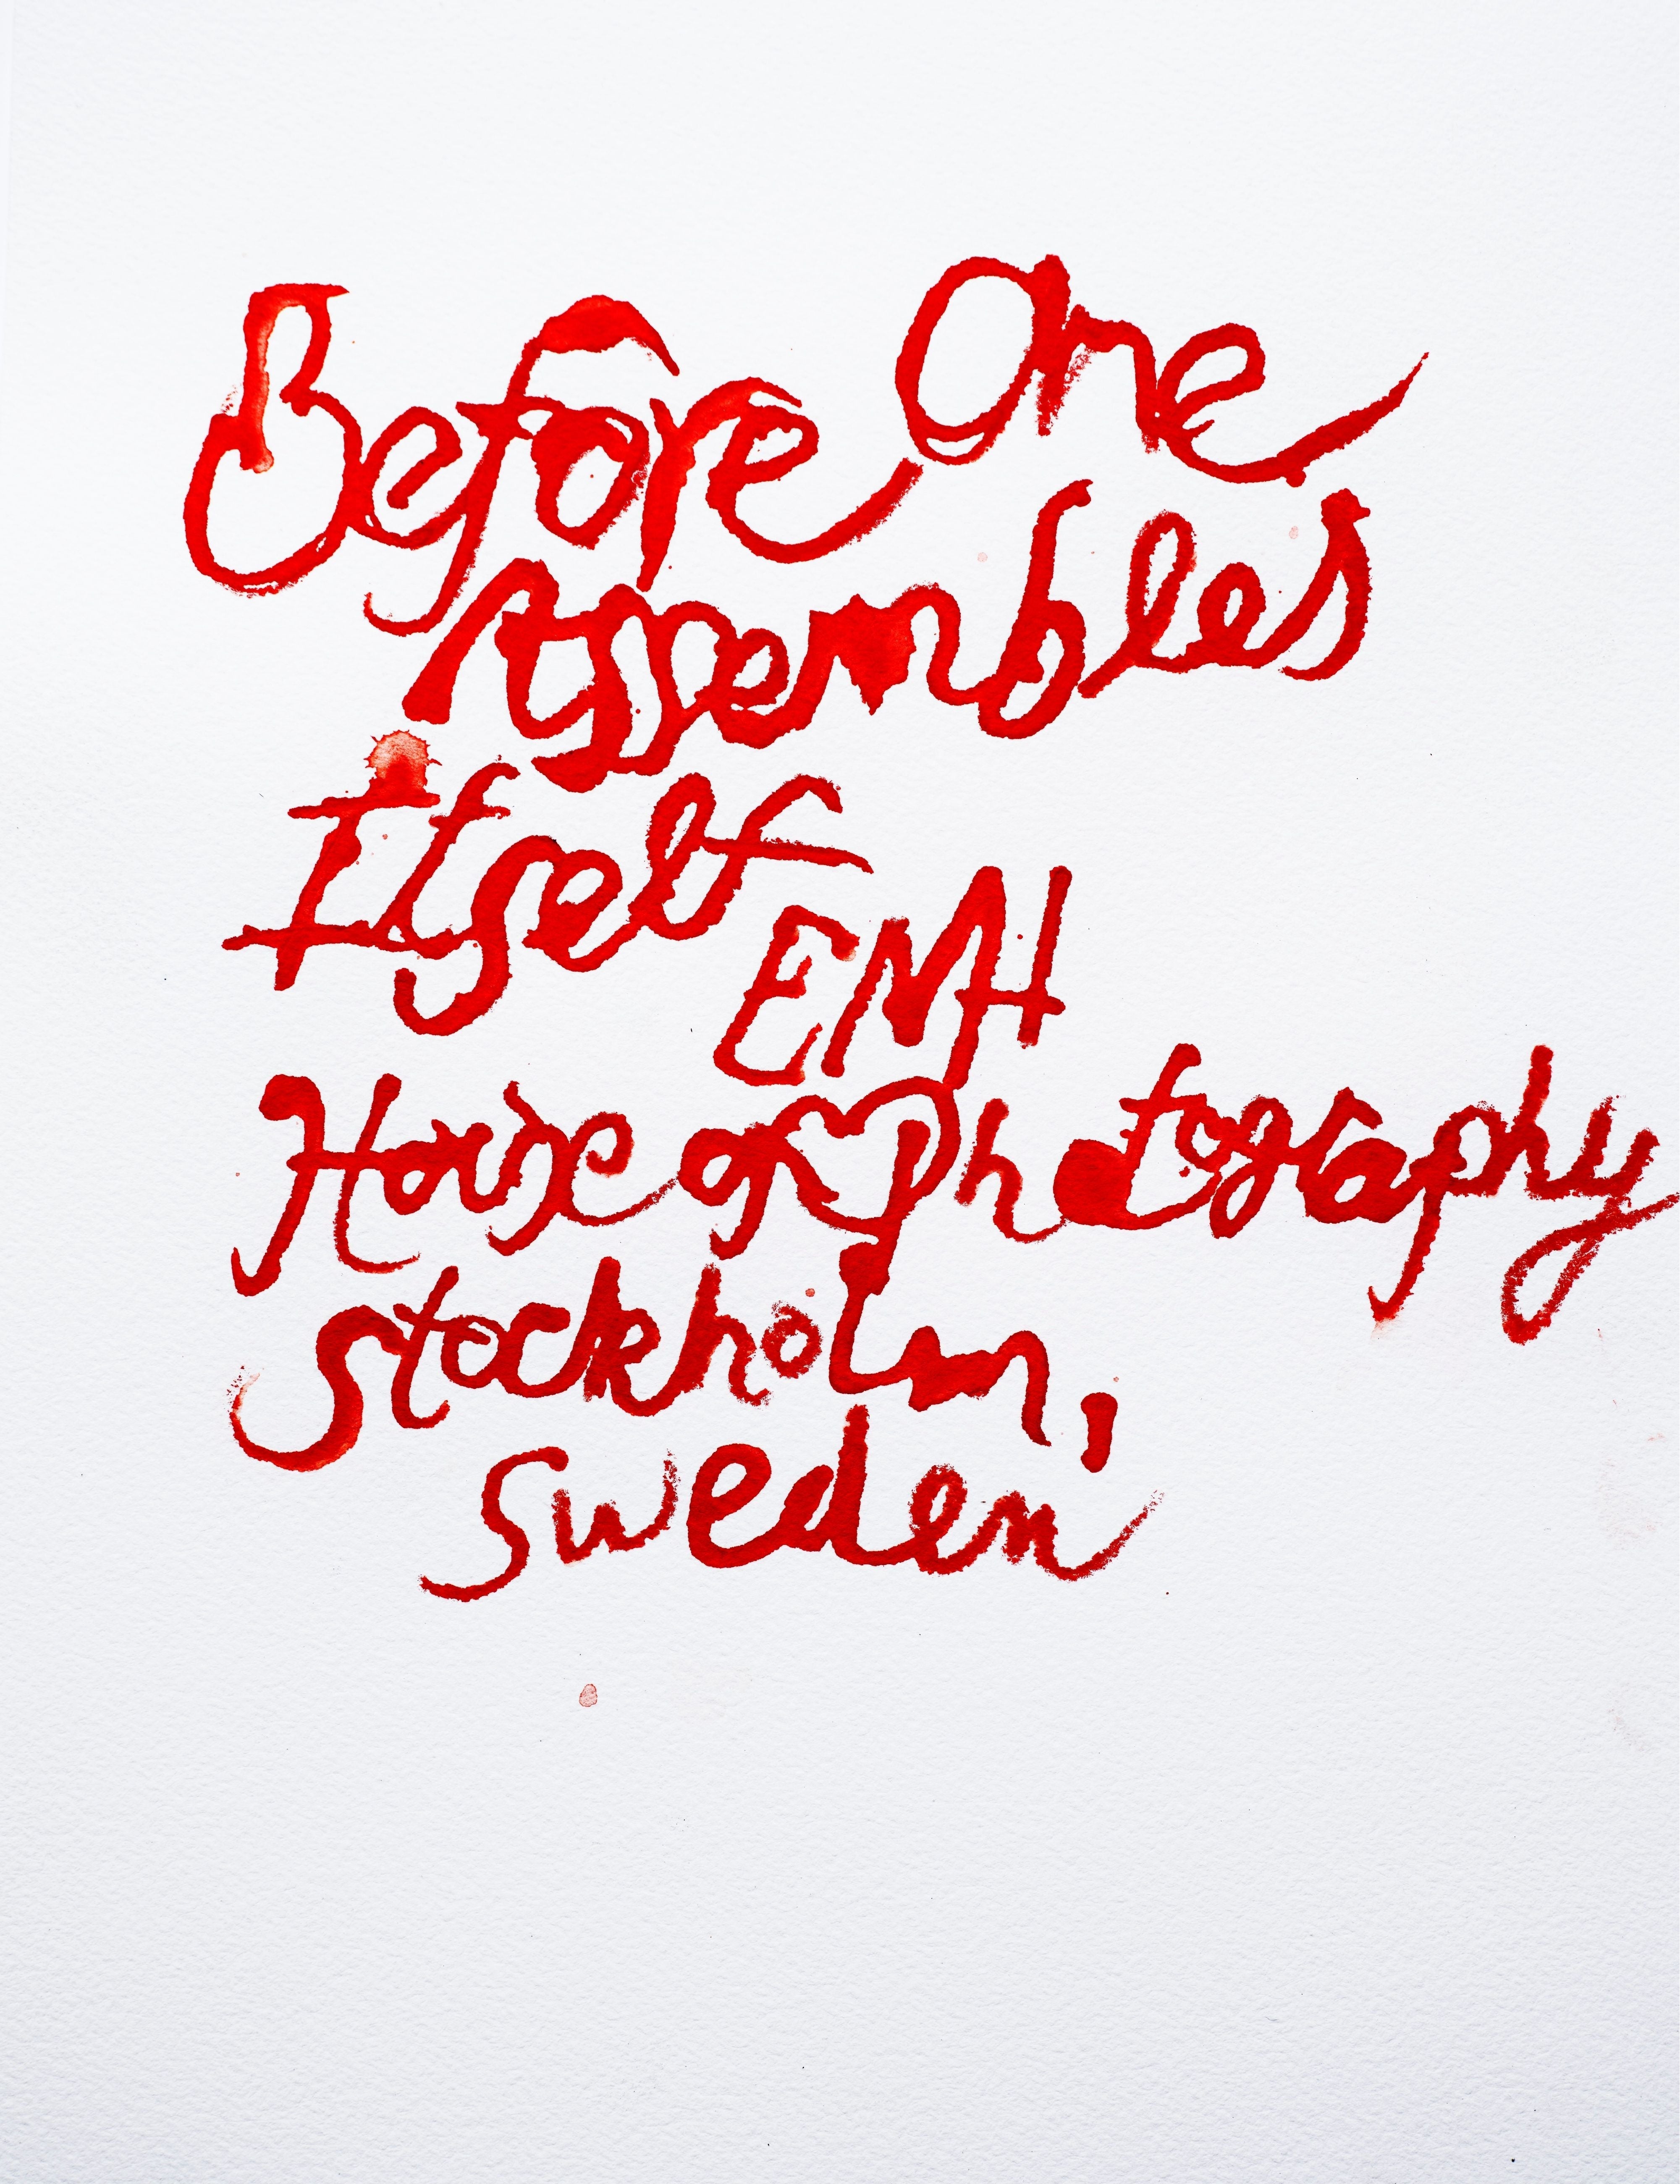 Before One
Assembles
Itself
EMH
House of Photography
Stockholm,
Sweden